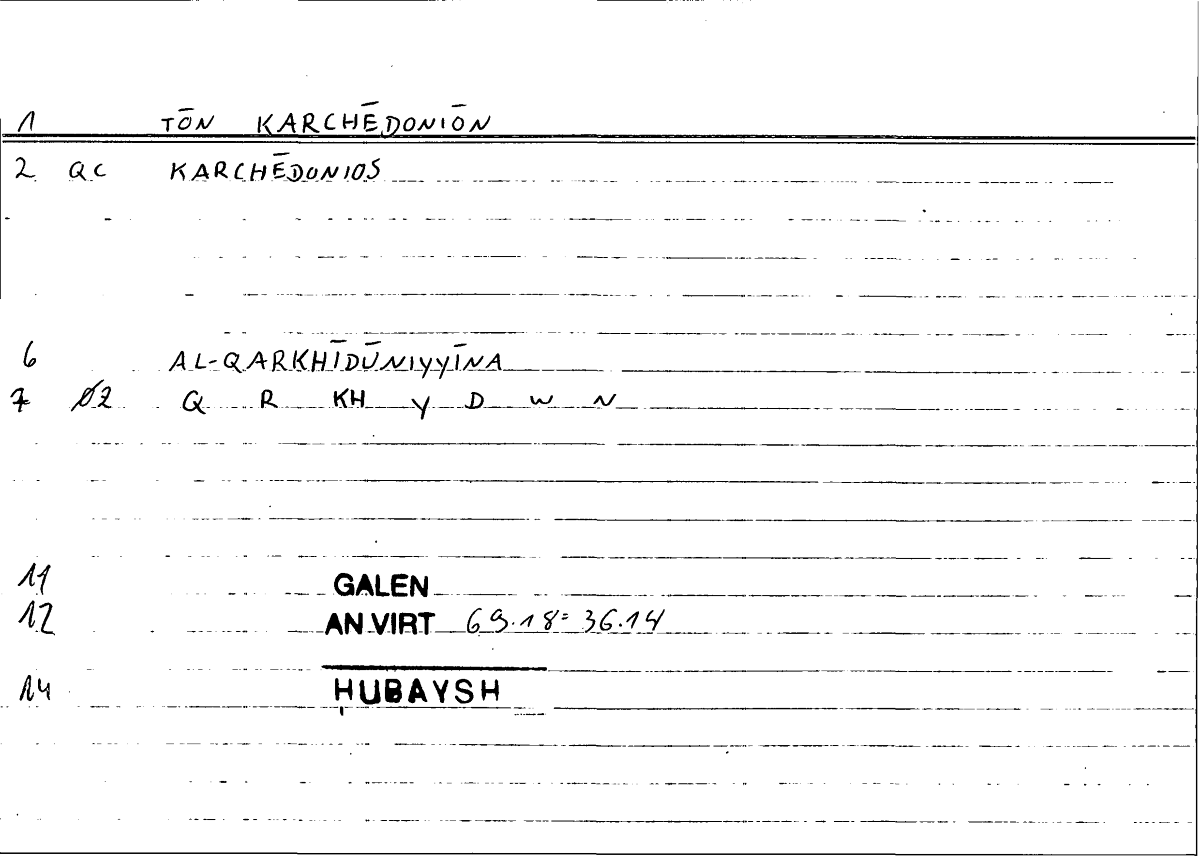 1 TŌN KARCHĒDONIŌN
2 QC KARCHĒDONIOS
6 AL-QARKHĪDŪNIYYĪNA
7 Ø2 Q R KH Y D W N
11 GALEN
12 AN VIRT 69.18=36.14
14 ḤUBAYSH